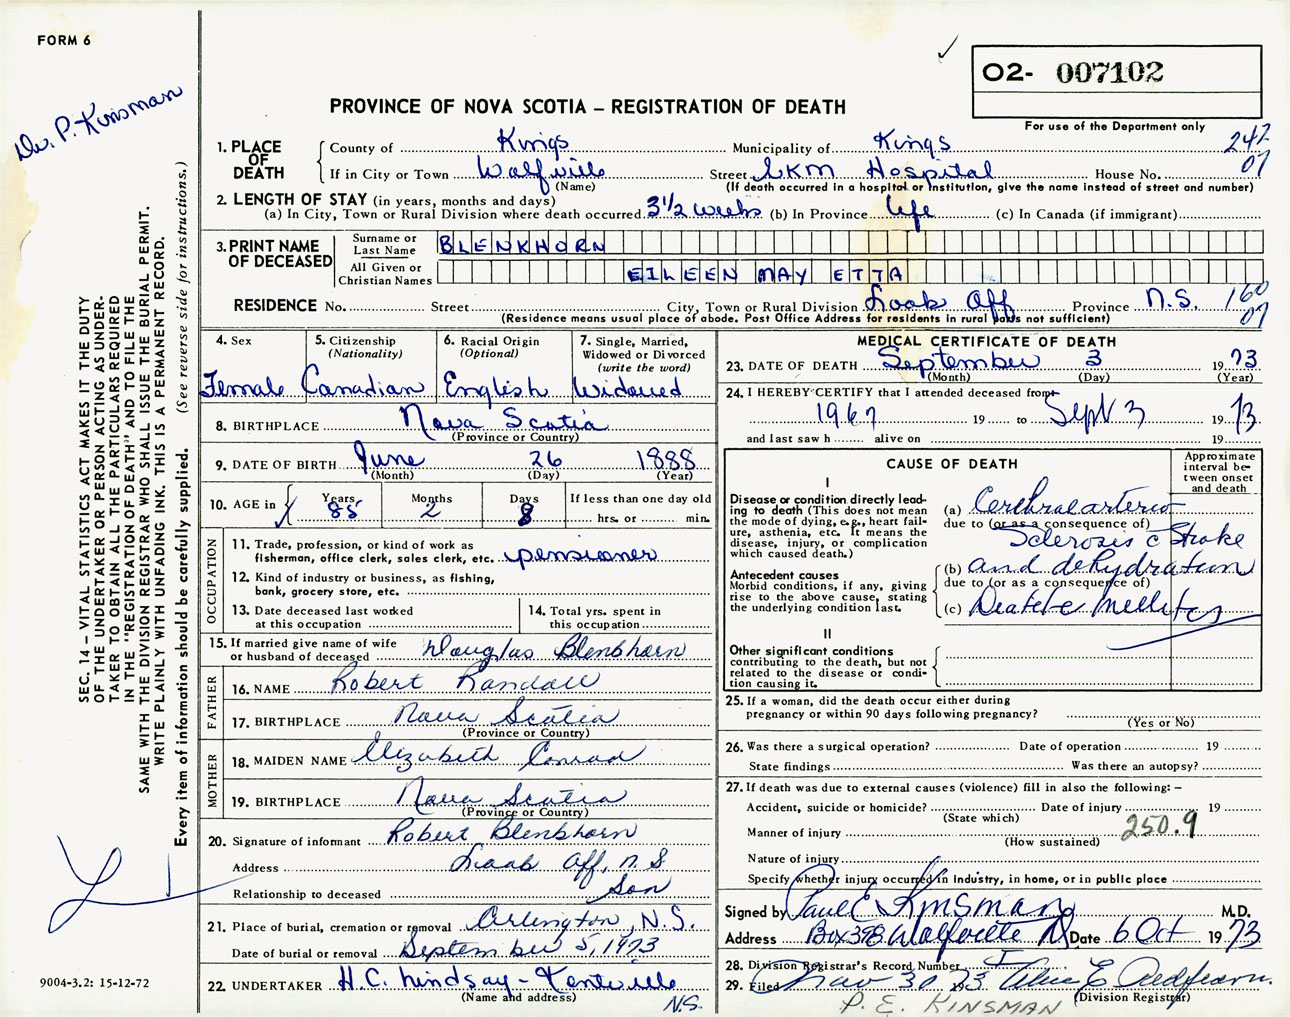 FORM 6
Dr. P. Kinsman
SEC. 14 – VITAL STATISTICS ACT MAKES IT THE DUTY
OF THE UNDERTAKER OR PERSON ACTING AS UNDER-
TAKER TO OBTAIN ALL THE PARTICULARS REQUIRED
IN THE "REGISTRATION OF DEATH" AND TO FILE THE
SAME WITH THE DIVISION REGISTRAR WHO SHALL ISSUE THE BURIAL PERMIT.
WRITE PLAINLY WITH UNFADING INK. THIS IS A PERMANENT RECORD.
Every item of information should be carefully supplied. (See reverse side for instructions.)
9004-3.2: 15-12-72
02- 007102
For use of the Department only
PROVINCE OF NOVA SCOTIA – REGISTRATION OF DEATH
1. PLACE OF DEATH County of Kings Municipality of Kings 247
If in City or Town Wolfville Street EKM Hospital House No. 07
(Name) (If death occurred in a hospital or institution, give the name instead of street and number)
2. LENGTH OF STAY (in years, months and days)
(a) In City, Town or Rural Division where death occurred 3 1/2 weeks (b) In Province Life (c) In Canada (if immigrant)
3. PRINT NAME OF DECEASED Surname or Last Name BLENKHORN
All Given or Christian Names EILEEN MAY ETTA
RESIDENCE No. Street City, Town or Rural Division Look Off Province N.S. 160
(Residence means usual place of abode. Post Office Address for residents in rural parts not sufficient) 07
4. Sex Female
5. Citizenship (Nationality) Canadian
6. Racial Origin (Optional) English
7. Single, Married, Widowed or Divorced (write the word) Widowed
8. BIRTHPLACE Nova Scotia
(Province or Country)
9. DATE OF BIRTH June 26 1888
(Month) (Day) (Year)
10. AGE in Years 85 Months 2 Days 8 If less than one day old
hrs. or min.
OCCUPATION
11. Trade, profession, or kind of work as
fisherman, office clerk, sales clerk, etc. pensioner
12. Kind of industry or business, as fishing,
bank, grocery store, etc.
13. Date deceased last worked
at this occupation
14. Total yrs. spent in
this occupation
15. If married give name of wife
or husband of deceased Douglas Blenkhorn
FATHER
16. NAME Robert Randall
17. BIRTHPLACE Nova Scotia
(Province or Country)
MOTHER
18. MAIDEN NAME Elizabeth Conrad
19. BIRTHPLACE Nova Scotia
(Province or Country)
20. Signature of informant Robert Blenkhorn
Address Look Off, N.S
Relationship to deceased Son
21. Place of burial, cremation or removal Arlington, N.S.
Date of burial or removal September 5, 1973
22. UNDERTAKER H.C. Lindsay - Kentville
(Name and address) N.S.
MEDICAL CERTIFICATE OF DEATH
23. DATE OF DEATH September 3 1973
(Month) (Day) (Year)
24. I HEREBY CERTIFY that I attended deceased from
1967 19 to Sept 3 1973
and last saw h alive on 19
CAUSE OF DEATH
Approximate interval between onset and death
I
Disease or condition directly lead-
ing to death (This does not mean
the mode of dying, e.g., heart fail-
ure, asthenia, etc. It means the
disease, injury, or complication
which caused death.)
(a) Cerebral arterio
due to (or as a consequence of)
Sclerosis c Stroke
Antecedent causes
Morbid conditions, if any, giving
rise to the above cause, stating
the underlying condition last.
(b) and dehydration
due to (or as a consequence of)
(c) Diabete mellitus
II
Other significant conditions
contributing to the death, but not
related to the disease or condi-
tion causing it.
25. If a woman, did the death occur either during
pregnancy or within 90 days following pregnancy?
(Yes or No)
26. Was there a surgical operation? Date of operation 19
State findings Was there an autopsy?
27. If death was due to external causes (violence) fill in also the following: –
Accident, suicide or homicide? Date of injury 19
(State which)
Manner of injury 250.9
(How sustained)
Nature of injury
Specify whether injury occurred in industry, in home, or in public place
Signed by Paul E Kinsman M.D.
Address Box 398 Wolfville NS Date 6 Oct 1973
28. Division Registrar's Record Number
29. Filed Nov 30 1973 Alice E. Redfearn
(Division Registrar)
P. E. KINSMAN